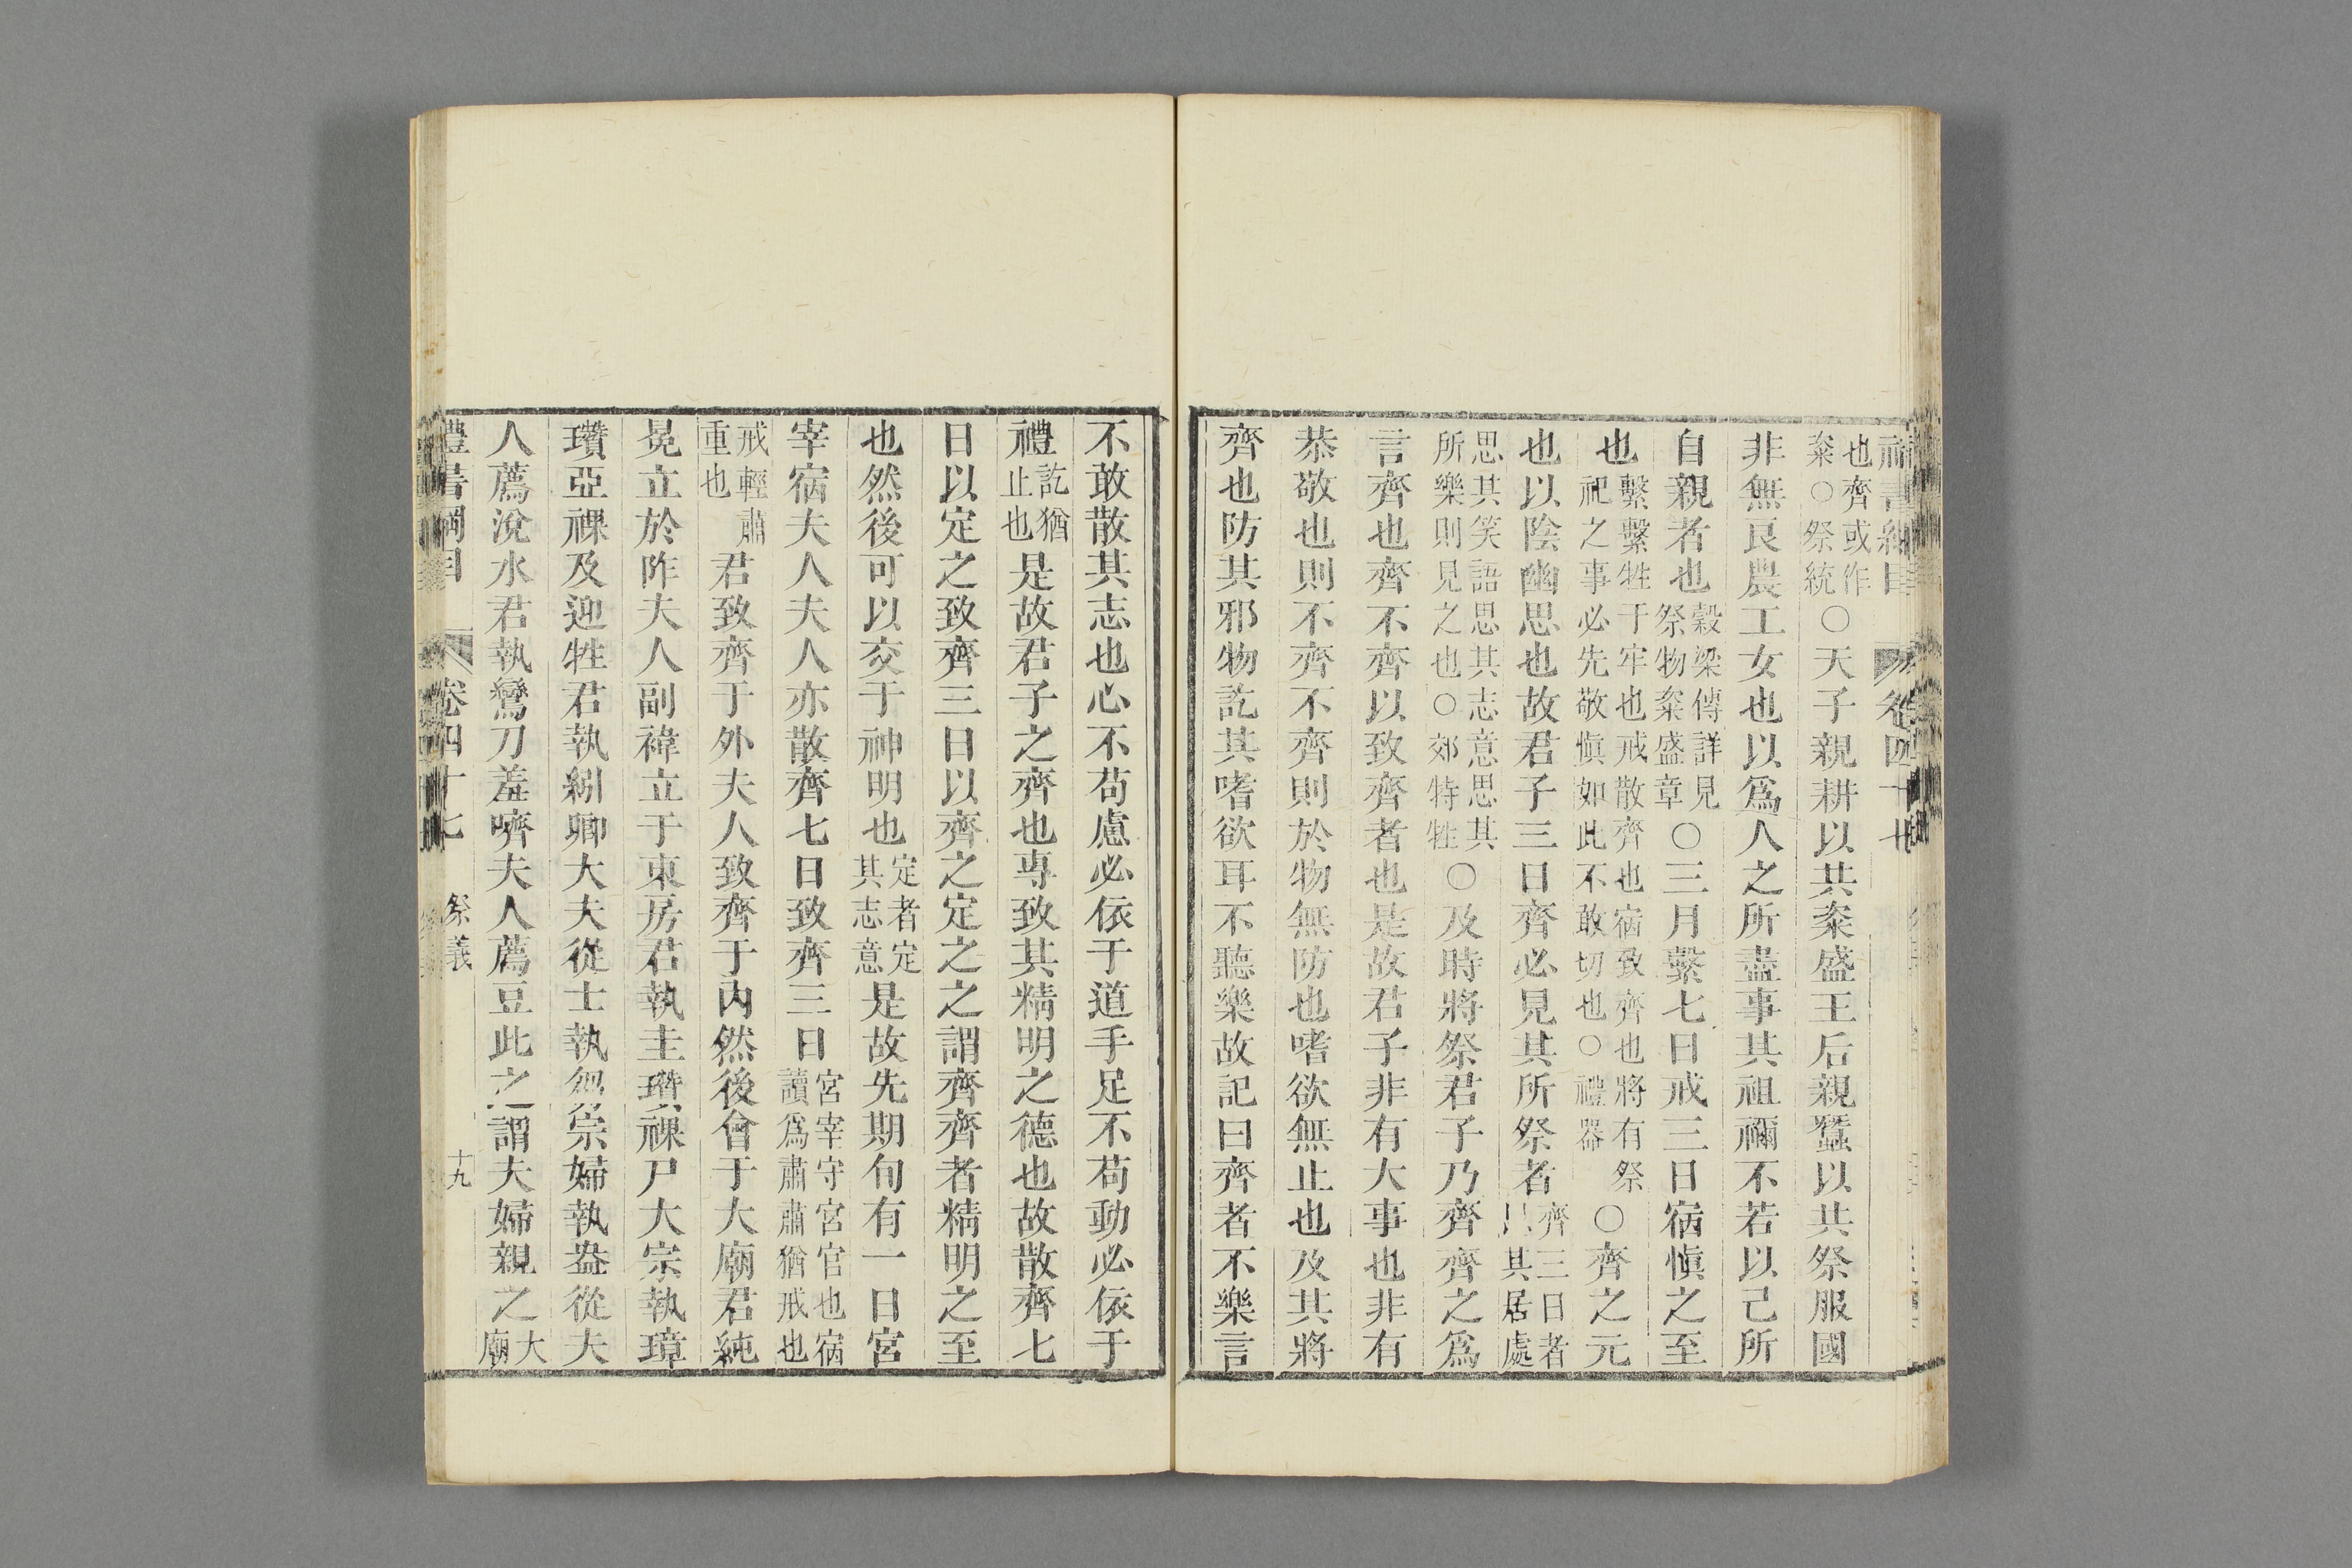 禮書綱目 卷四十七
也齊或作粢○祭統○天子親耕以共粢盛王后親蠶以共祭服國
非無良農工女也以爲人之所盡事其祖禰不若以己所
自親者也穀梁傳詳見祭物粢盛章○三月繫七日戒三日宿愼之至
也繫繫牲于牢也戒散齊也宿致齊也將有祭祀之事必先敬愼如此不敢切也○禮器○齊之元
也以陰幽思也故君子三日齊必見其所祭者齊三日者思其居處
思其笑語思其志意思其所樂則見之也○郊特牲○及時將祭君子乃齊齊之爲
言齊也齊不齊以致齊者也是故君子非有大事也非有
恭敬也則不齊不齊則於物無防也嗜欲無止也及其將
齊也防其邪物訖其嗜欲耳不聽樂故記曰齊者不樂言
不敢散其志也心不苟慮必依于道手足不苟動必依于
禮訖猶止也是故君子之齊也專致其精明之德也故散齊七
日以定之致齊三日以齊之定之之謂齊齊者精明之至
也然後可以交于神明也定者定其志意是故先期旬有一日宮
宰宿夫人夫人亦散齊七日致齊三日宮宰守宮官也宿讀爲肅肅猶戒也
戒輕肅重也君致齊于外夫人致齊于內然後會于大廟君純
冕立於阼夫人副褘立于東房君執圭瓚祼尸大宗執璋
瓚亞祼及迎牲君執紖卿大夫從士執芻宗婦執盎從夫
人薦涗水君執鸞刀羞嚌夫人薦豆此之謂夫婦親之大廟
禮書綱目 卷四十七 祭義 十九